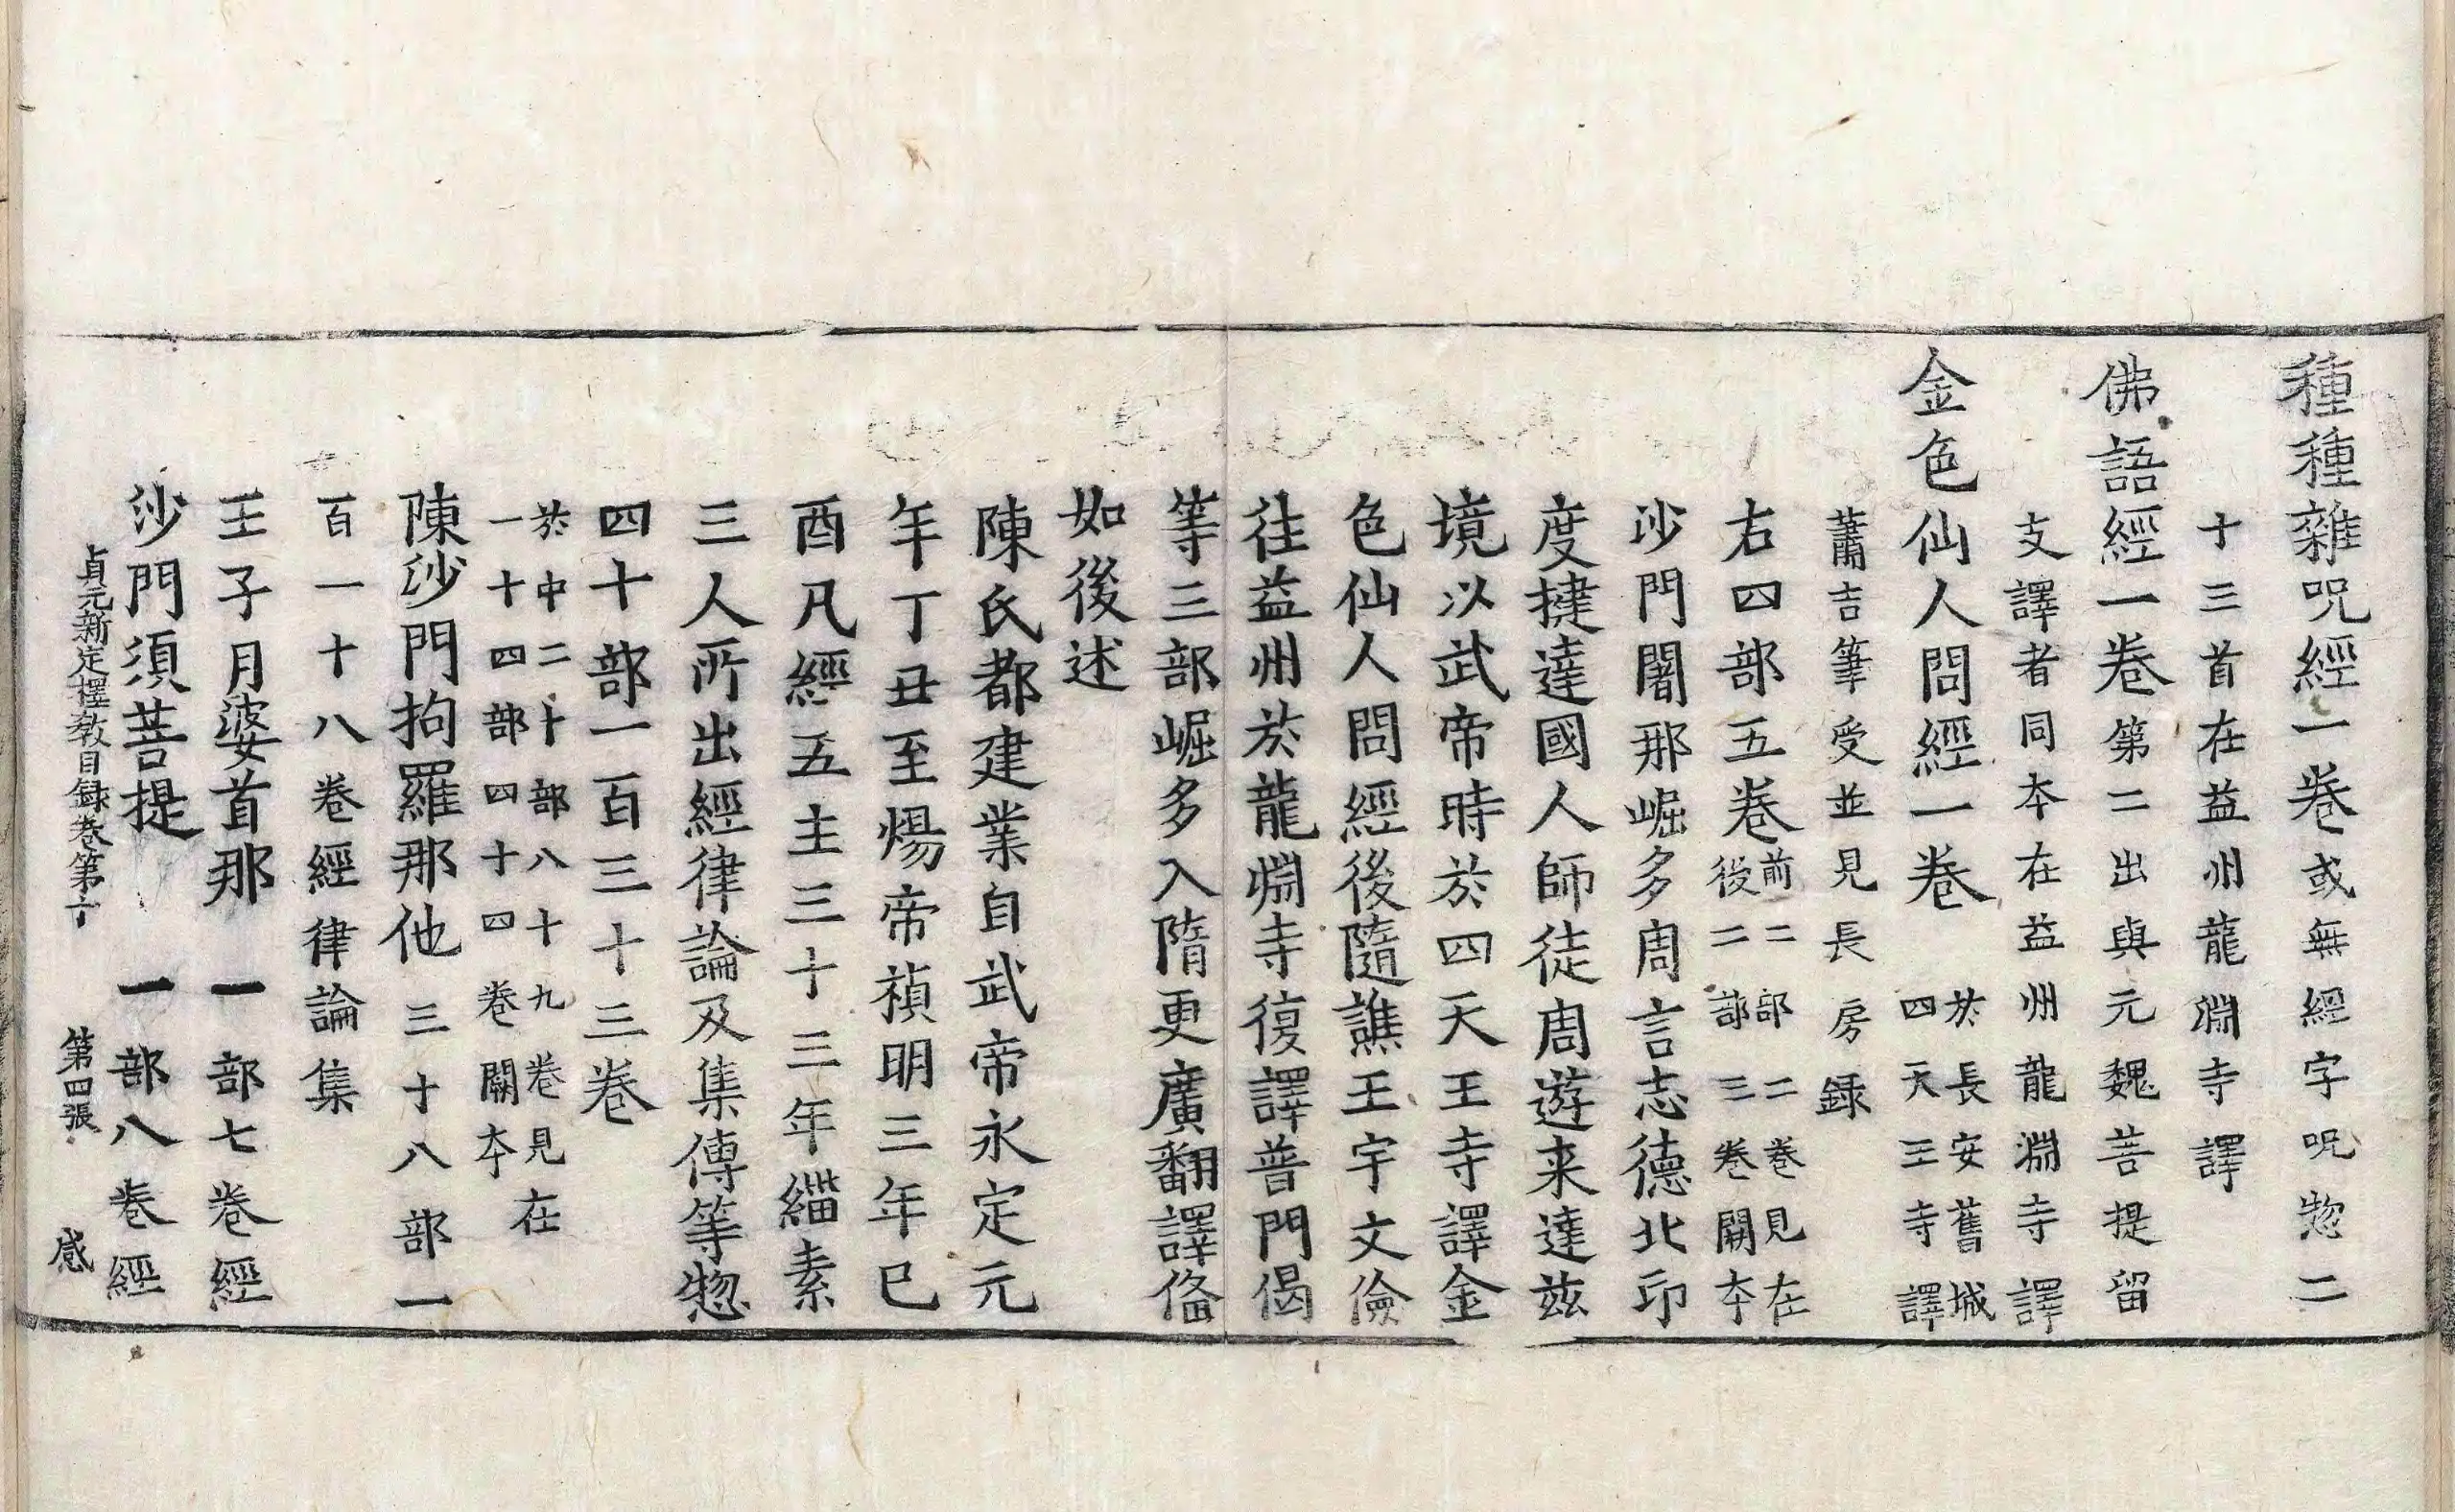 種種雜呪經一卷或無經字呪惣二
十三首在益州龍淵寺譯
佛語經一卷第二出與元魏菩提留
支譯者同本在益州龍淵寺譯
金色仙人問經一卷於長安舊城四天王寺譯
蕭吉筆受並見長房録
右四部五卷前二部二卷見在後二部三卷闕本
沙門闍那崛多周言志德北印
度揵達國人師徒周遊来達兹
境以武帝時於四天王寺譯金
色仙人問經後隨譙王宇文儉
往益州於龍淵寺復譯普門偈
等三部崛多入隋更廣翻譯俻
如後述
陳氏都建業自武帝永定元
年丁丑至煬帝禎明三年巳
酉凡經五主三十三年緇素
三人所出經律論及集傳等惣
四十部一百三十三卷
於中二十部八十九卷見在
一十四部四十四卷闕本
陳沙門拘羅那他三十八部一
百一十八卷經律論集
王子月婆首那 一部七卷經
沙門須菩提 一部八卷經
貞元新定釋教目録卷第十 第四張 感